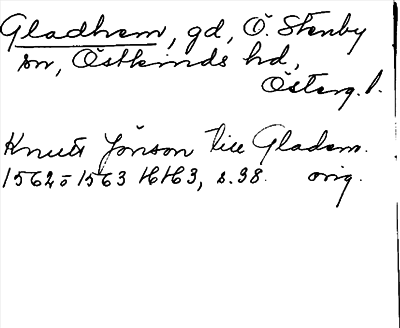 Gladhem, gd, Ö. Stenby
sn, Östkinds hd,
Österg. l.
Knutt Jönson tiil Gladem.
1562 o 1563 HH3, s. 38. orig.